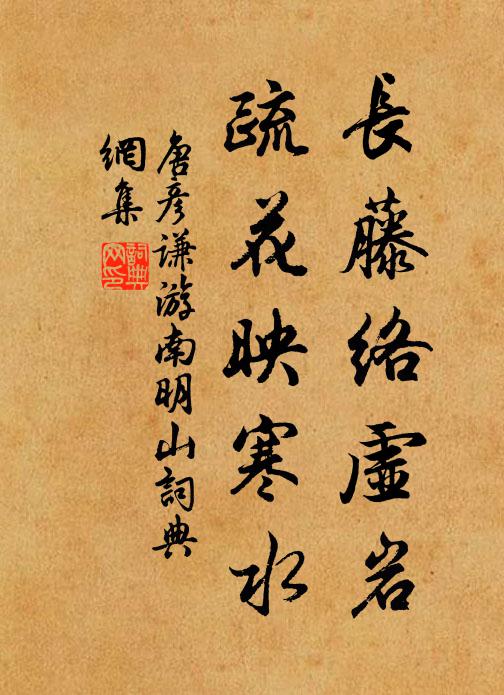 長藤络虛岩
疏花映寒水
唐彥谦游南明山詞典
網集
詞典网印